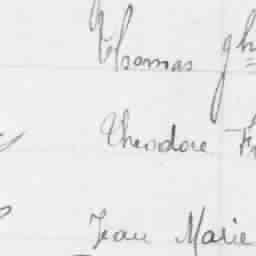 Thomas
Theodore
Jean Marie